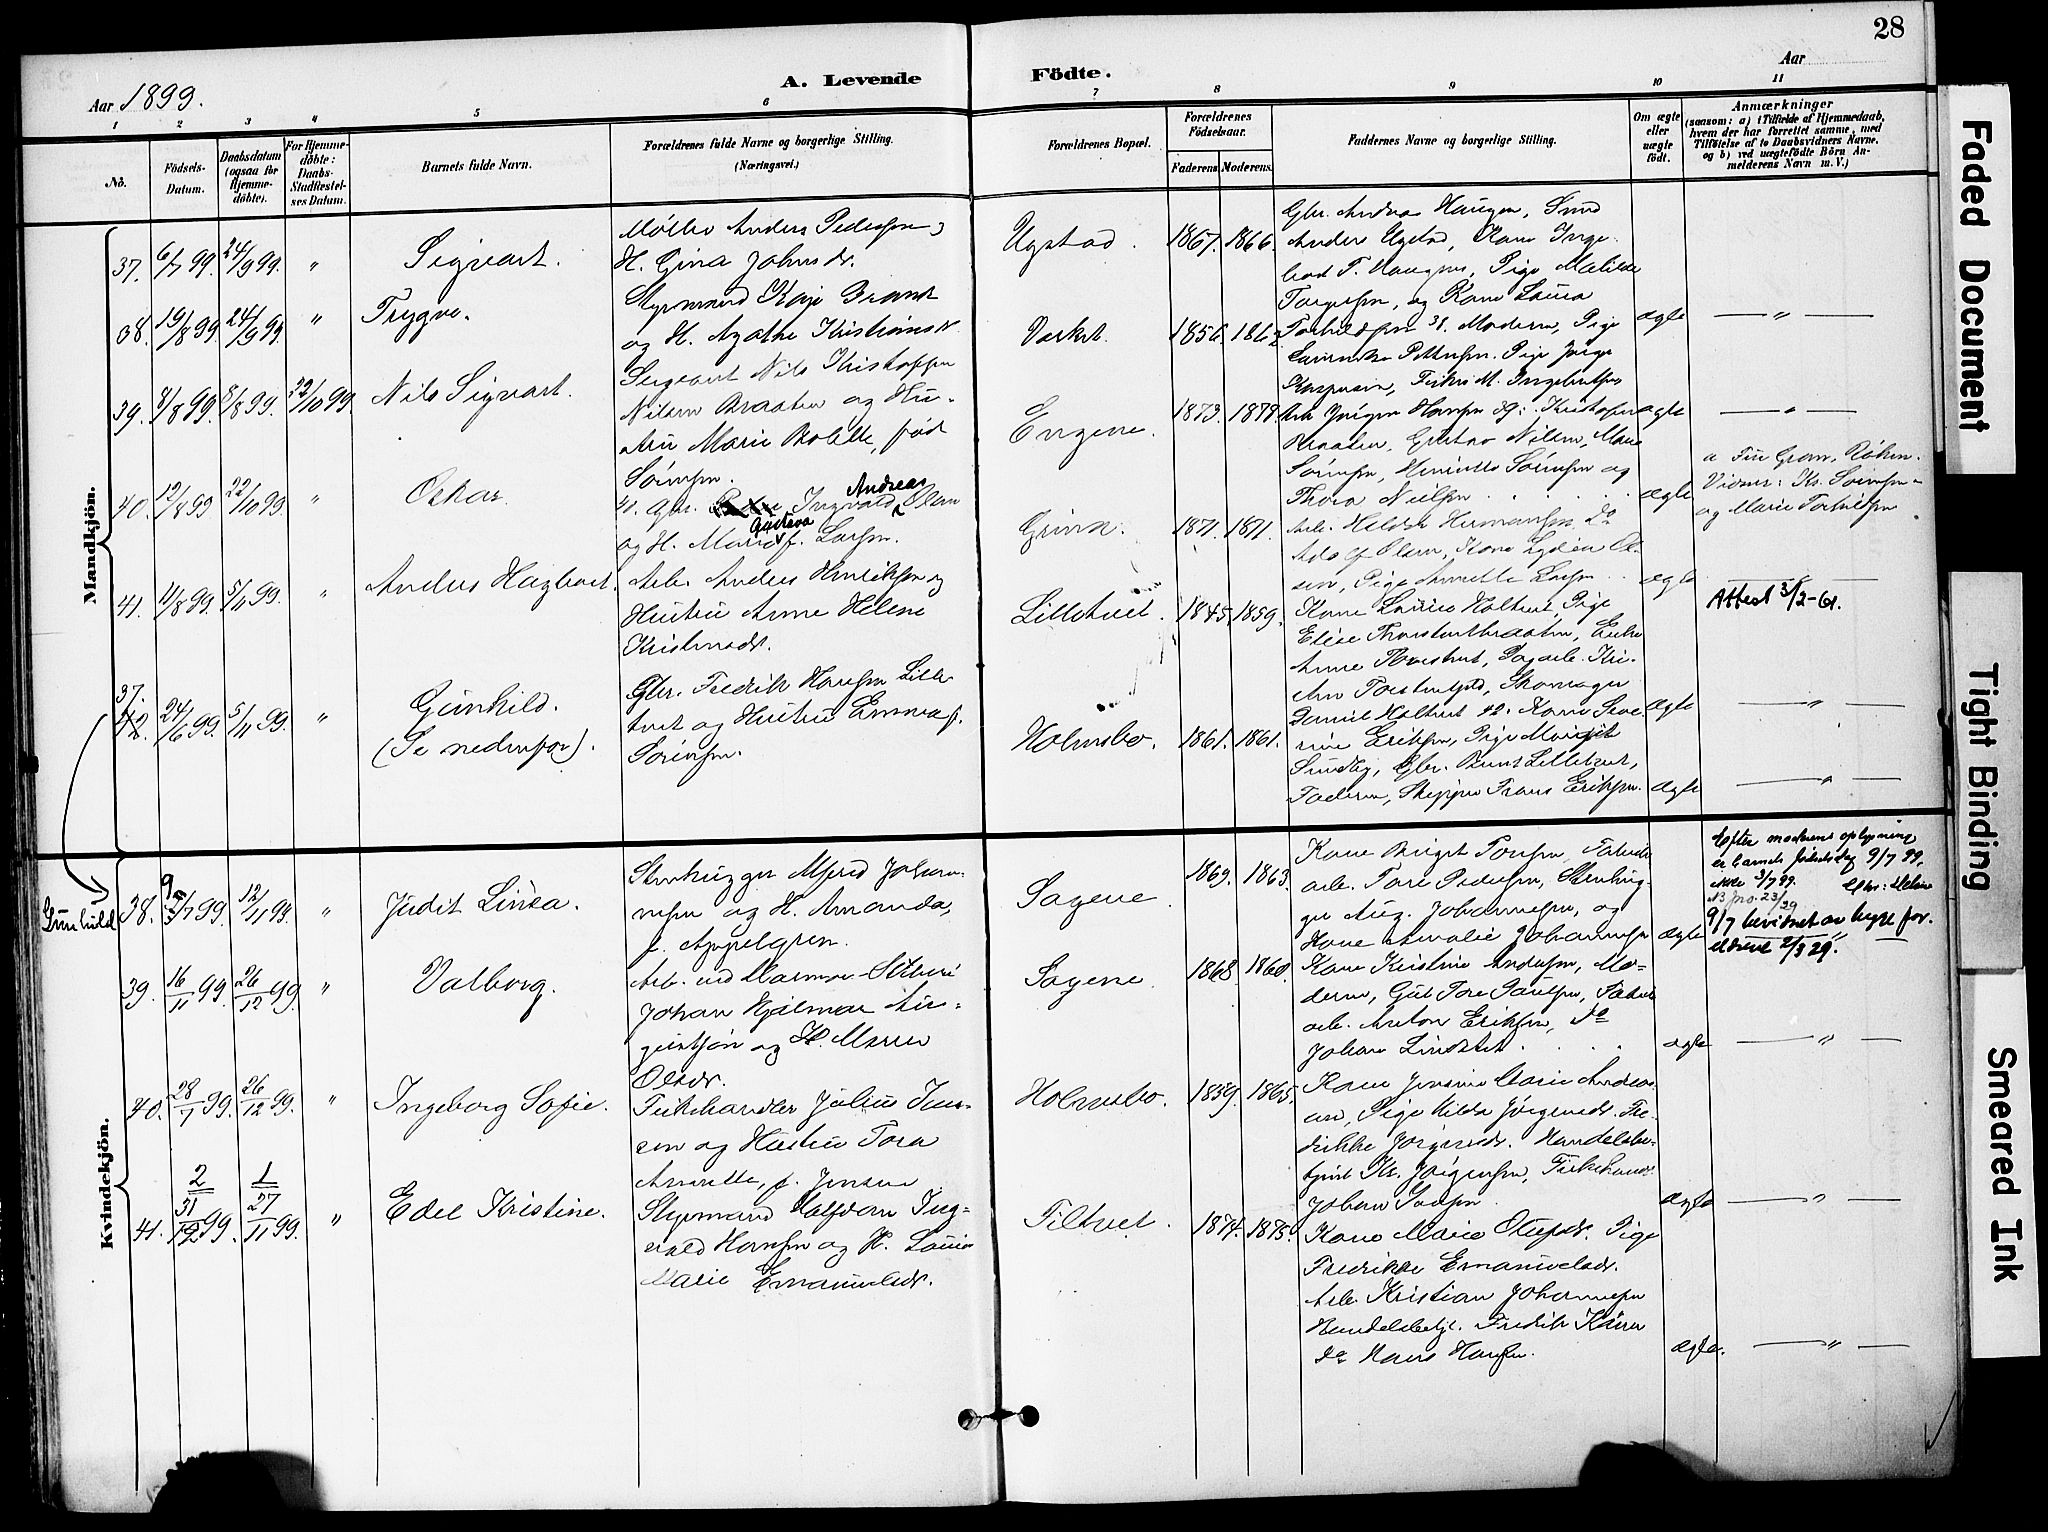 28
A. Levende Födte.
Aar 1899.
Aar
1 2 3 4 5 6 7 8 9 10 11
No.
Födsels-Datum.
Daabsdatum (ogsaa for Hjemme-döbte).
For Hjemme-döbte: Daabs-Stadfæstel-ses Datum.
Barnets fulde Navn.
Forældrenes fulde Navne og borgerlige Stilling. (Næringsvei.)
Forældrenes Bopæl.
Forældrenes Födselsaar.
Faderens. Moderens.
Faddernes Navne og borgerlige Stilling.
Om ægte eller uægte födt.
Anmærkninger
(saasom: a) i Tilfælde af Hjemmedaab, hvem der har forrettet samme, med Tilföielse af to Daabsvidners Navne, og b) ved uægtefödte Börn An-melderens Navn m. V.)
Mandkjön.
37. 6/7 99. 24/9 99. " Sigvart.
Møller Anders Pedersen,
H. Gina Johnsdr.
Ugstad. 1867. 1866.
Gbr. Andreas Haugen, Smed
Anders Ugstad, Kone Inge-
Haugen, Pige Matilde
Torgersen, og Kone Laura
ægte — " —
38. 19/8 99. 24/9 99. " Trygve.
Styrmand Kaje Brandt
og H. Agathe Kristiansdr.
Verket. 1856. 1862.
38. Moderen, Pige
Pettersen. Pige
39. 8/8 99. 8/8 99. 22/10 99. Nils Sigvart.
Sergeant Nils Kristoffer
Nilsen Braaten og Hu-
stru Marie Bolette, født
Sørensen.
Engene. 1873. 1878.
Arb. Jørgen Hansen 39: Kristofer
Braaten, Gustav Nilsen, Marie
Sørensen, Henriette Sørensen og
Thora Nielsen
ægte — " —
a Fru Gran, Røken.
Vidner: Kr. Sørensen
og Marie
ægte
40. 12/8 99 22/10 99. " Oskar.
40. Gbr. Ingvald Andreas Olsen
og H. Marie Gustava f. Larsen.
Grina. 1871. 1871.
Arb. Hermansen, Do
Adolf Olsen, Kone Lydia Ol-
sen, Pige Annette Larsen
ægte
41. 11/8 99. 5/11 99. " Anders Hagbart.
Arb. Anders Henriksen og
Hustru Anne Helene
Kristensdr.
Lilletvet. 1845. 1859.
Kone Laura Holtvet, Pige
Elise Enke
Anne
Skomager
ægte
Attest 3/2-61.
37.
42. 24/6 99. 5/11 99. " Gunhild.
(Se nedenfor).
Gbr. Fredrik Hansen Lille-
tvet og Hustru Emma f.
Sørensen.
Holmsbo. 1861. 1861.
Daniel Holtvet 42. Kone Seve-
rine Eriksen, Pige Margit
Sundby, Gbr. Bernt Lilletvet,
Faderen, Skipper Frans Eriksen.
ægte — " —
Kvindekjön.
Gunhild
38. 9/7 99. 12/11 99. Judit Linea.
Stenhugger Alfred Johan-
nesen og H. Amanda,
f. Appelgren.
Sagene. 1869. 1863.
Kone Birgit Paulsen, Fabrik-
arb. Tore Pedersen, Stenhug-
ger Aug. Johannesen, og
Kone Amalie Johannesen
ægte
Efter moderens oplysning
er barnets fødselsdag 9/7 99,
ikke 3/7 99.
9/7 bevidnet av begge for-
eldrene 2/3 29.
39. 16/11 99. 26/12 99. " Valborg.
Arb. ved Marmor-Sliberi
Johan Hjalmar Au-
gustsøn og H. Maren
Olsdr.
Sagene. 1868. 1860.
Kone Kristine Andersen, Mo-
deren, Gut Tore Paulsen, Fabrik-
arb. Anton Eriksen, Do
Johan Lindstet
ægte — " —
40. 28/1 99. 26/12 99. " Ingeborg Sofie.
Fiskehandler Julius Iver-
sen og Hustru Tora
Annette, f. Jensen
Holmsbo. 1859. 1865.
Kone Jensine Marie Andrea-
sen, Pige Hilda Jørgensdr. Fre-
drikke Jørgensdr. Handelsbe-
tjent Kr. Jørgensen, Fiskehandl.
Johan
ægte — " —
41. 2/31/12 99. 1/27/11 99. " Edel Kristine.
Styrmand Halfdan Ing-
vald Hansen og H. Laura
Marie Emanuelsdr.
Tiltvet. 1874. 1875.
Kone Marie Olufsdr. Pige
Fredrikke Emanuelsdr.
Arb. Kristian Johannesen
Handelsbetj. Fredrik
Do Hans Hansen.
ægte. — " —
Faded Document
Tight Binding
Smeared Ink